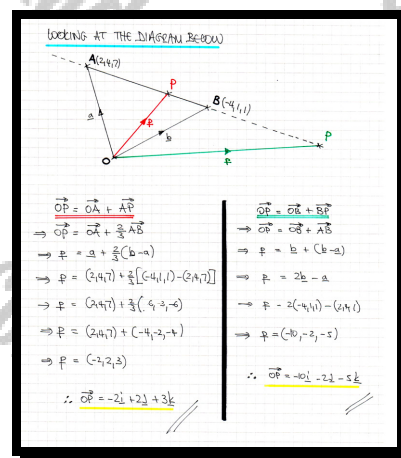 LOOKING AT THE DIAGRAM BELOW
A(2,4,7)
P
B(-4,1,1)
a
p
b
P
O
p
OP = OA + AP
⇒ OP = OA + 2/3 AB
⇒ p = a + 2/3(b-a)
⇒ p = (2,4,7) + 2/3[(-4,1,1)-(2,4,7)]
⇒ p = (2,4,7) + 2/3(-6,-3,-6)
⇒ p = (2,4,7) + (-4,-2,-4)
⇒ p = (-2,2,3)
∴ OP = -2i + 2j + 3k
OP = OB + BP
⇒ OP = OB + AB
⇒ p = b + (b-a)
⇒ p = 2b - a
⇒ p = 2(-4,1,1)-(2,4,7)
⇒ p = (-10,-2,-5)
∴ OP = -10i - 2j - 5k